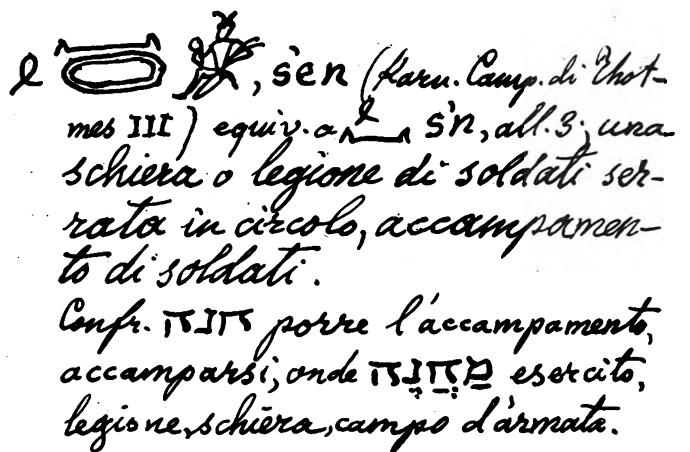 , šen (Karn. Camp. di Thot-
mes III) equiv. a šn, all. 3; una
schiera o legione di soldati ser-
rata in circolo, accampamen-
to di soldati.
Confr. חנה porre l'accampamento,
accamparsi, onde מַחֲנֶה esercito,
legione, schiera, campo d'armata.